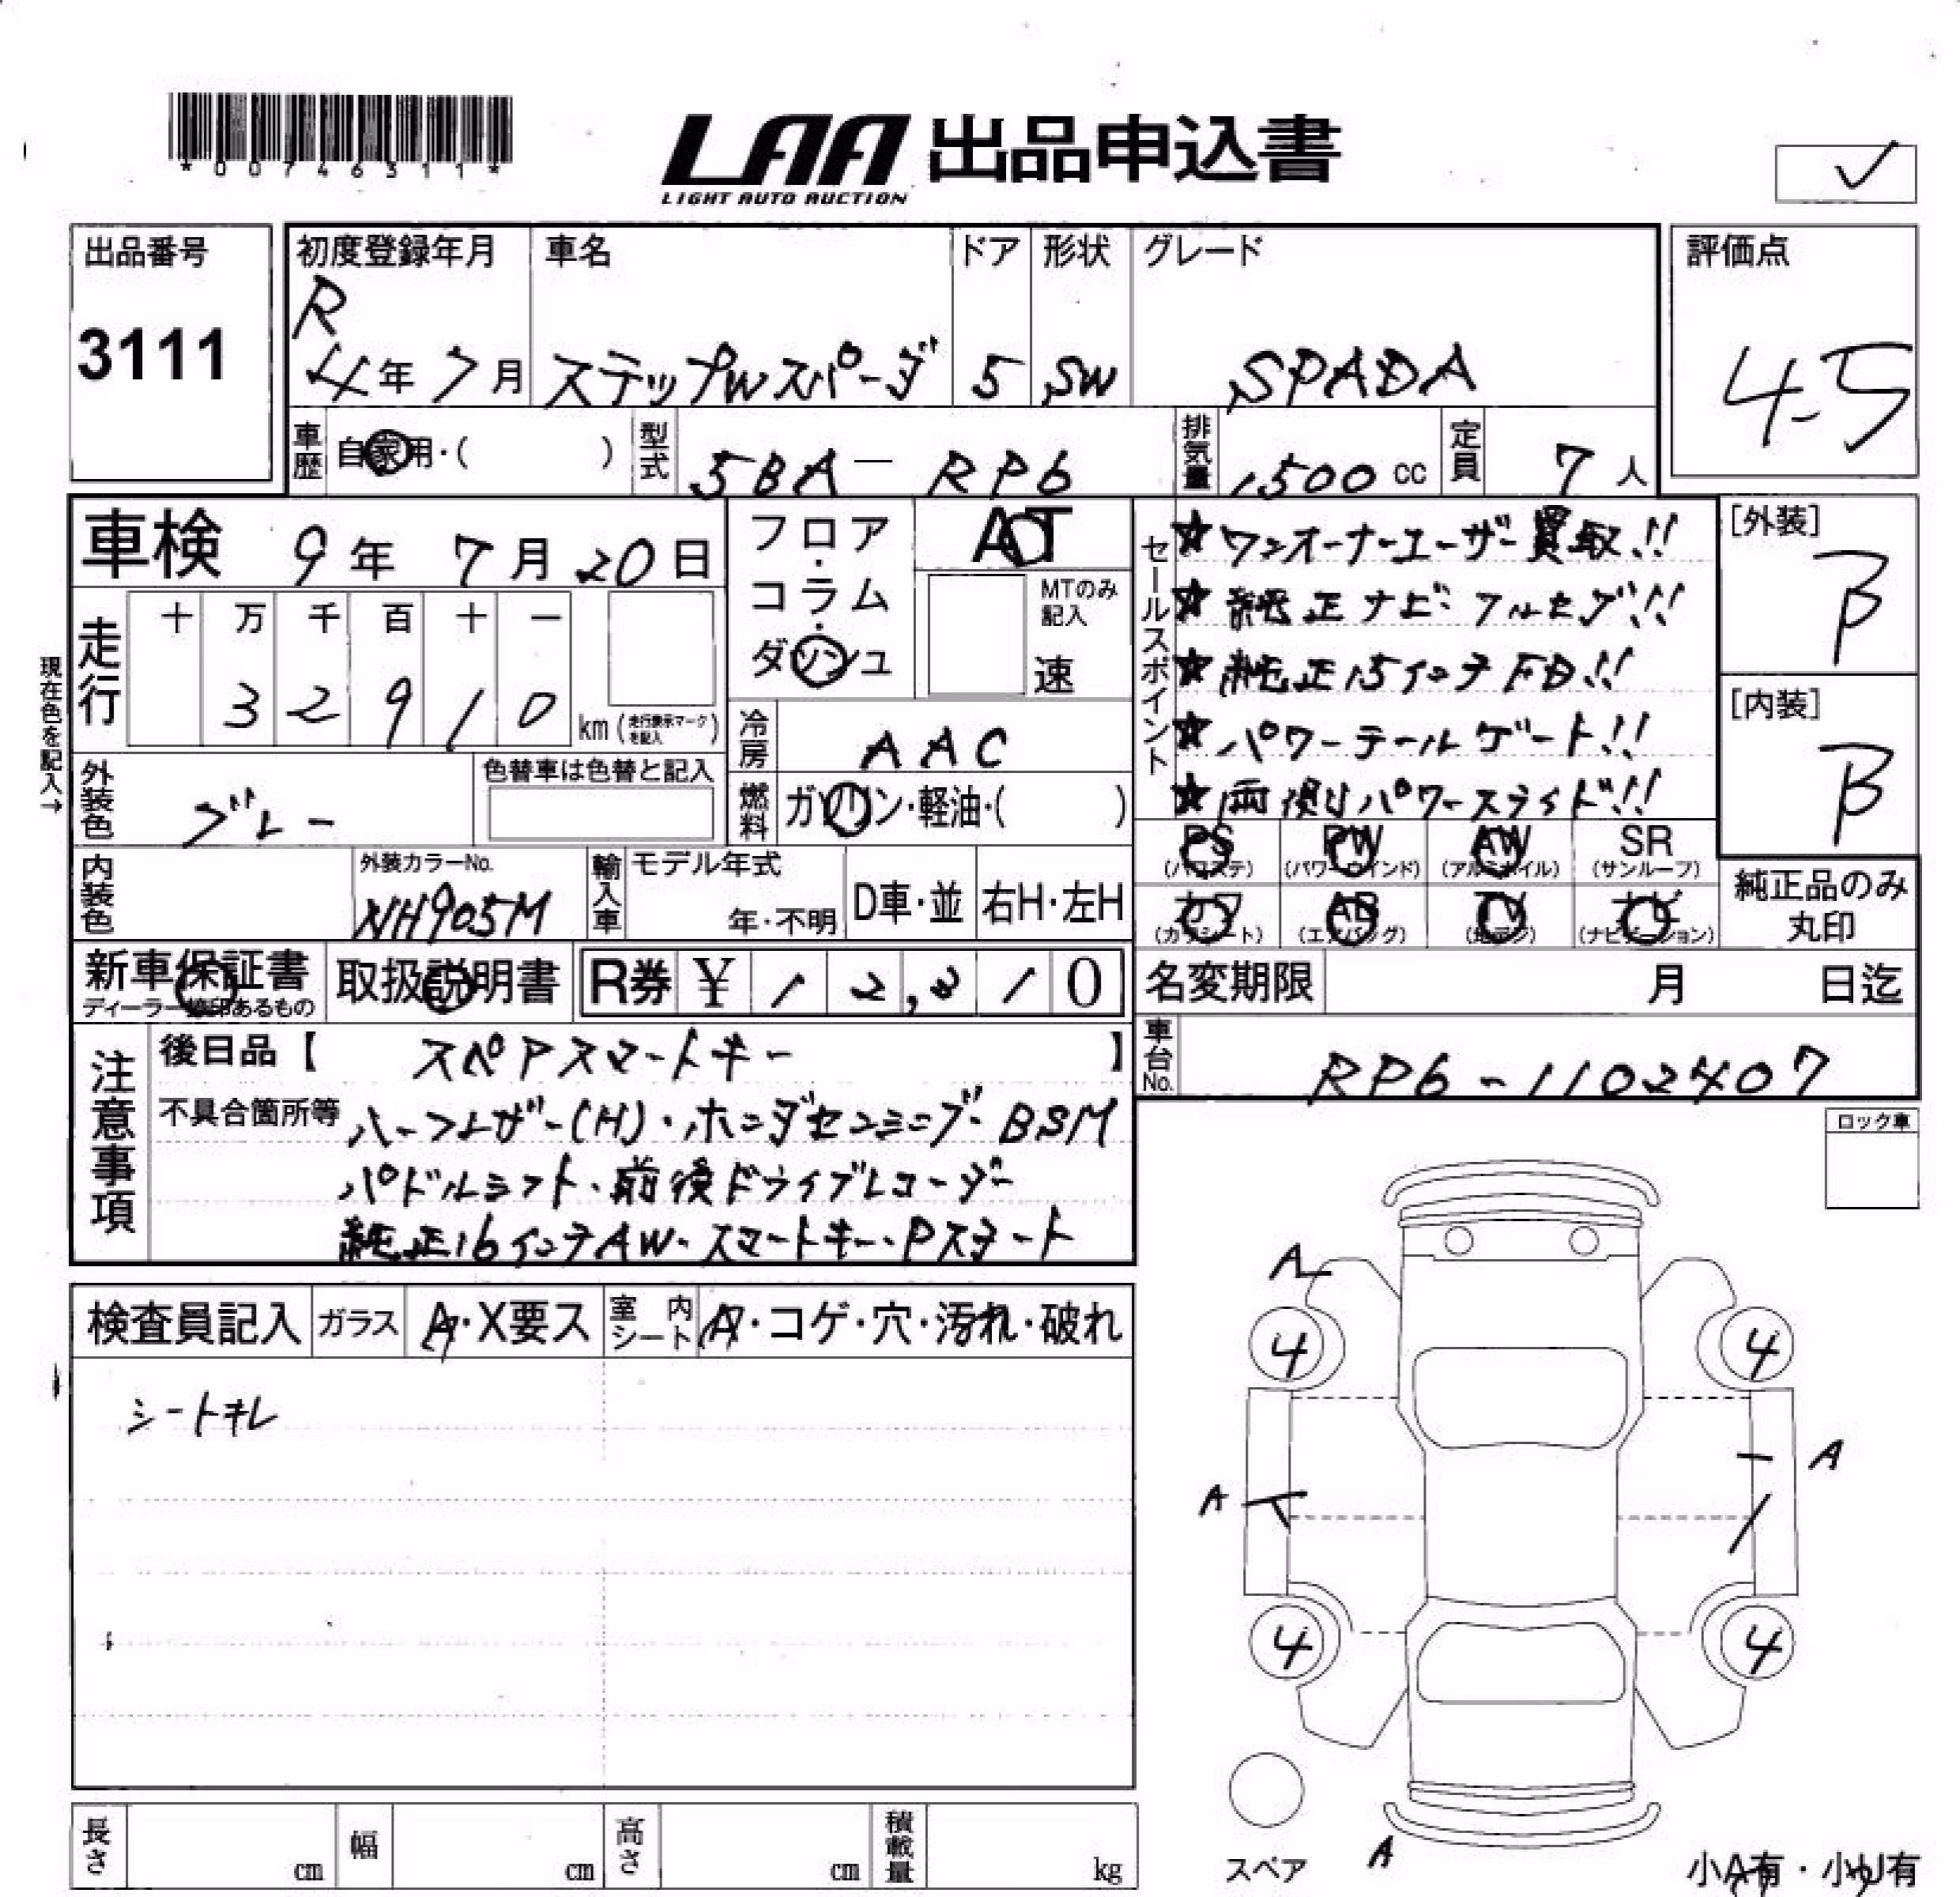 *00746311*
LAA 出品申込書
LIGHT AUTO AUCTION
✓
出品番号
3111
初度登録年月
R
4年7月
車名
ステップWスパーダ
ドア
5
形状
SW
グレード
SPADA
評価点
4.5
車歴
自家用・( )
型式
5BA-RP6
排気量
1500 cc
定員
7人
車検 9年 7月 20日
フロア・コラム・ダッシュ
AT
MTのみ記入
速
セールスポイント
☆ワンオーナーユーザー買取!!
☆純正ナビ・フルセグ!!
☆純正15インチFD!!
☆パワーテールゲート!!
☆両側パワースライド!!
[外装]
B
[内装]
B
現在色を記入→
走行
十 万 千 百 十 一
3 2 9 1 0
km(走行表示マークを記入)
冷房
AAC
外装色
グレー
色替車は色替と記入
燃料
ガソリン・軽油・( )
PS
(パワステ)
PW
(パワーウインド)
AW
(アルミホイル)
SR
(サンルーフ)
カワ
(カワシート)
AB
(エアバッグ)
TV
(地デジ)
ナビ
(ナビゲーション)
純正品のみ丸印
内装色
外装カラーNo.
NH905M
輸入車
モデル年式
年・不明
D車・並
右H・左H
新車保証書
ディーラー捺印あるもの
取扱説明書
R券 ¥ 1 2,3 1 0
名変期限 月 日迄
車台No.
RP6-1102407
注意事項
後日品【 スペアスマートキー 】
不具合箇所等 ハーフレザー(H)・ホンダセンシング・BSM
パドルシフト・前後ドライブレコーダー
純正16インチAW・スマートキー・Pスタート
ロック車
検査員記入
ガラス
A・X要ス
室内シート
A・コゲ・穴・汚れ・破れ
シートキレ
A
4
4
A
A
4
4
スペア
A
小A有・小U有
長さ cm
幅 cm
高さ cm
積載量 kg